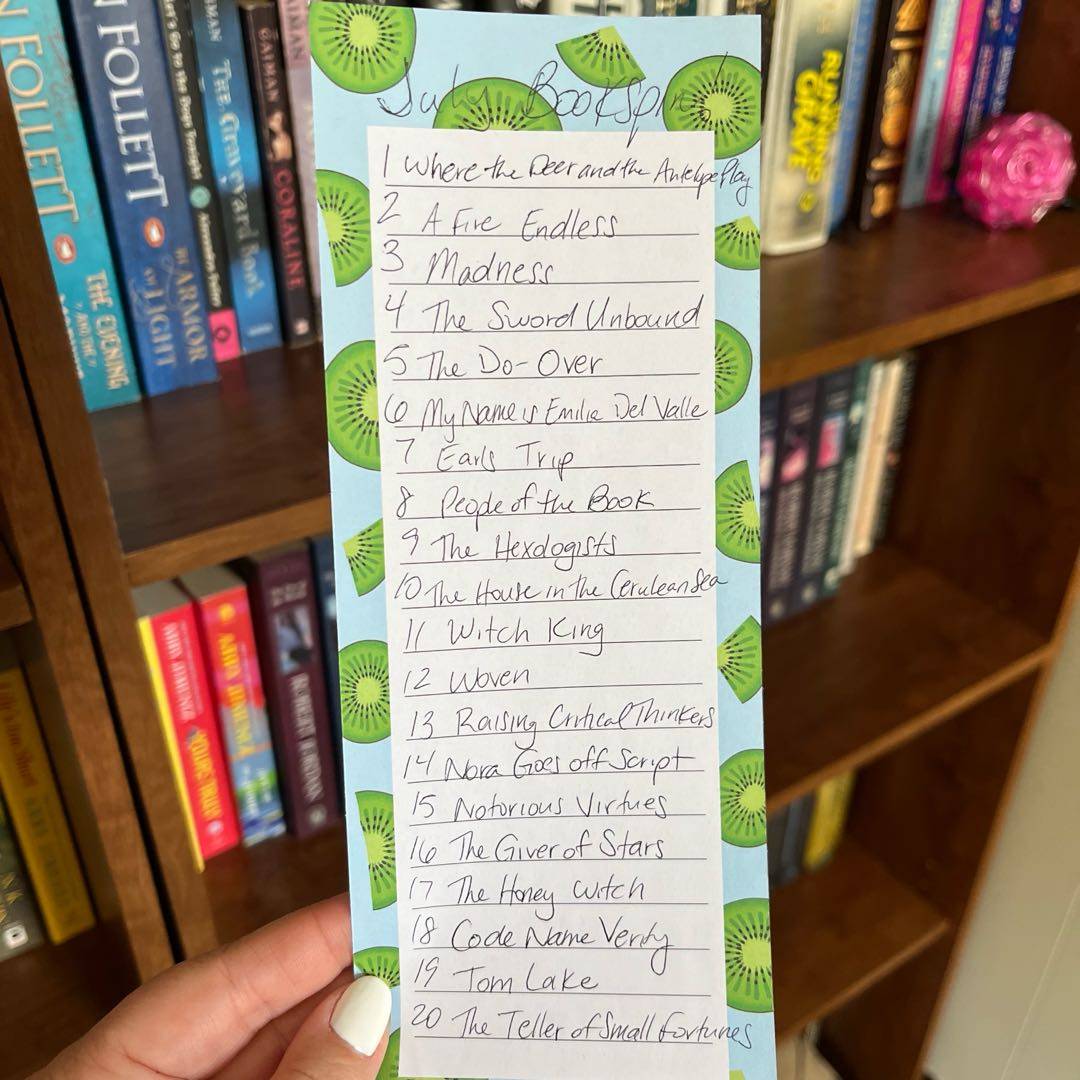 July BookSpin!
1 Where the Deer and the Antelope Play
2 A Fire Endless
3 Madness
4 The Sword Unbound
5 The Do-Over
6 My Name is Emilia Del Valle
7 Earls Trip
8 People of the Book
9 The Hexologists
10 The House in the Cerulean Sea
11 Witch King
12 Woven
13 Raising Critical Thinkers
14 Nora Goes off Script
15 Notorious Virtues
16 The Giver of Stars
17 The Honey Witch
18 Code Name Verity
19 Tom Lake
20 The Teller of Small Fortunes
N FOLLETT
THE EVENING
AND THE
FOLLETT
THE ARMOR
OF LIGHT
The Graveyard Book
GAIMAN
CORALINE
RUNNING
GRAVE
ABBY JIMENEZ
ABBY JIMENEZ